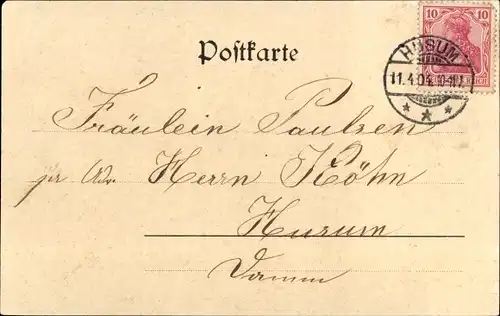 10 10
Postkarte
HUSUM
11.4.04. 10-11V.
Fräulein Paulsen
pr Adr. Herrn Köhn
Husum
Damm